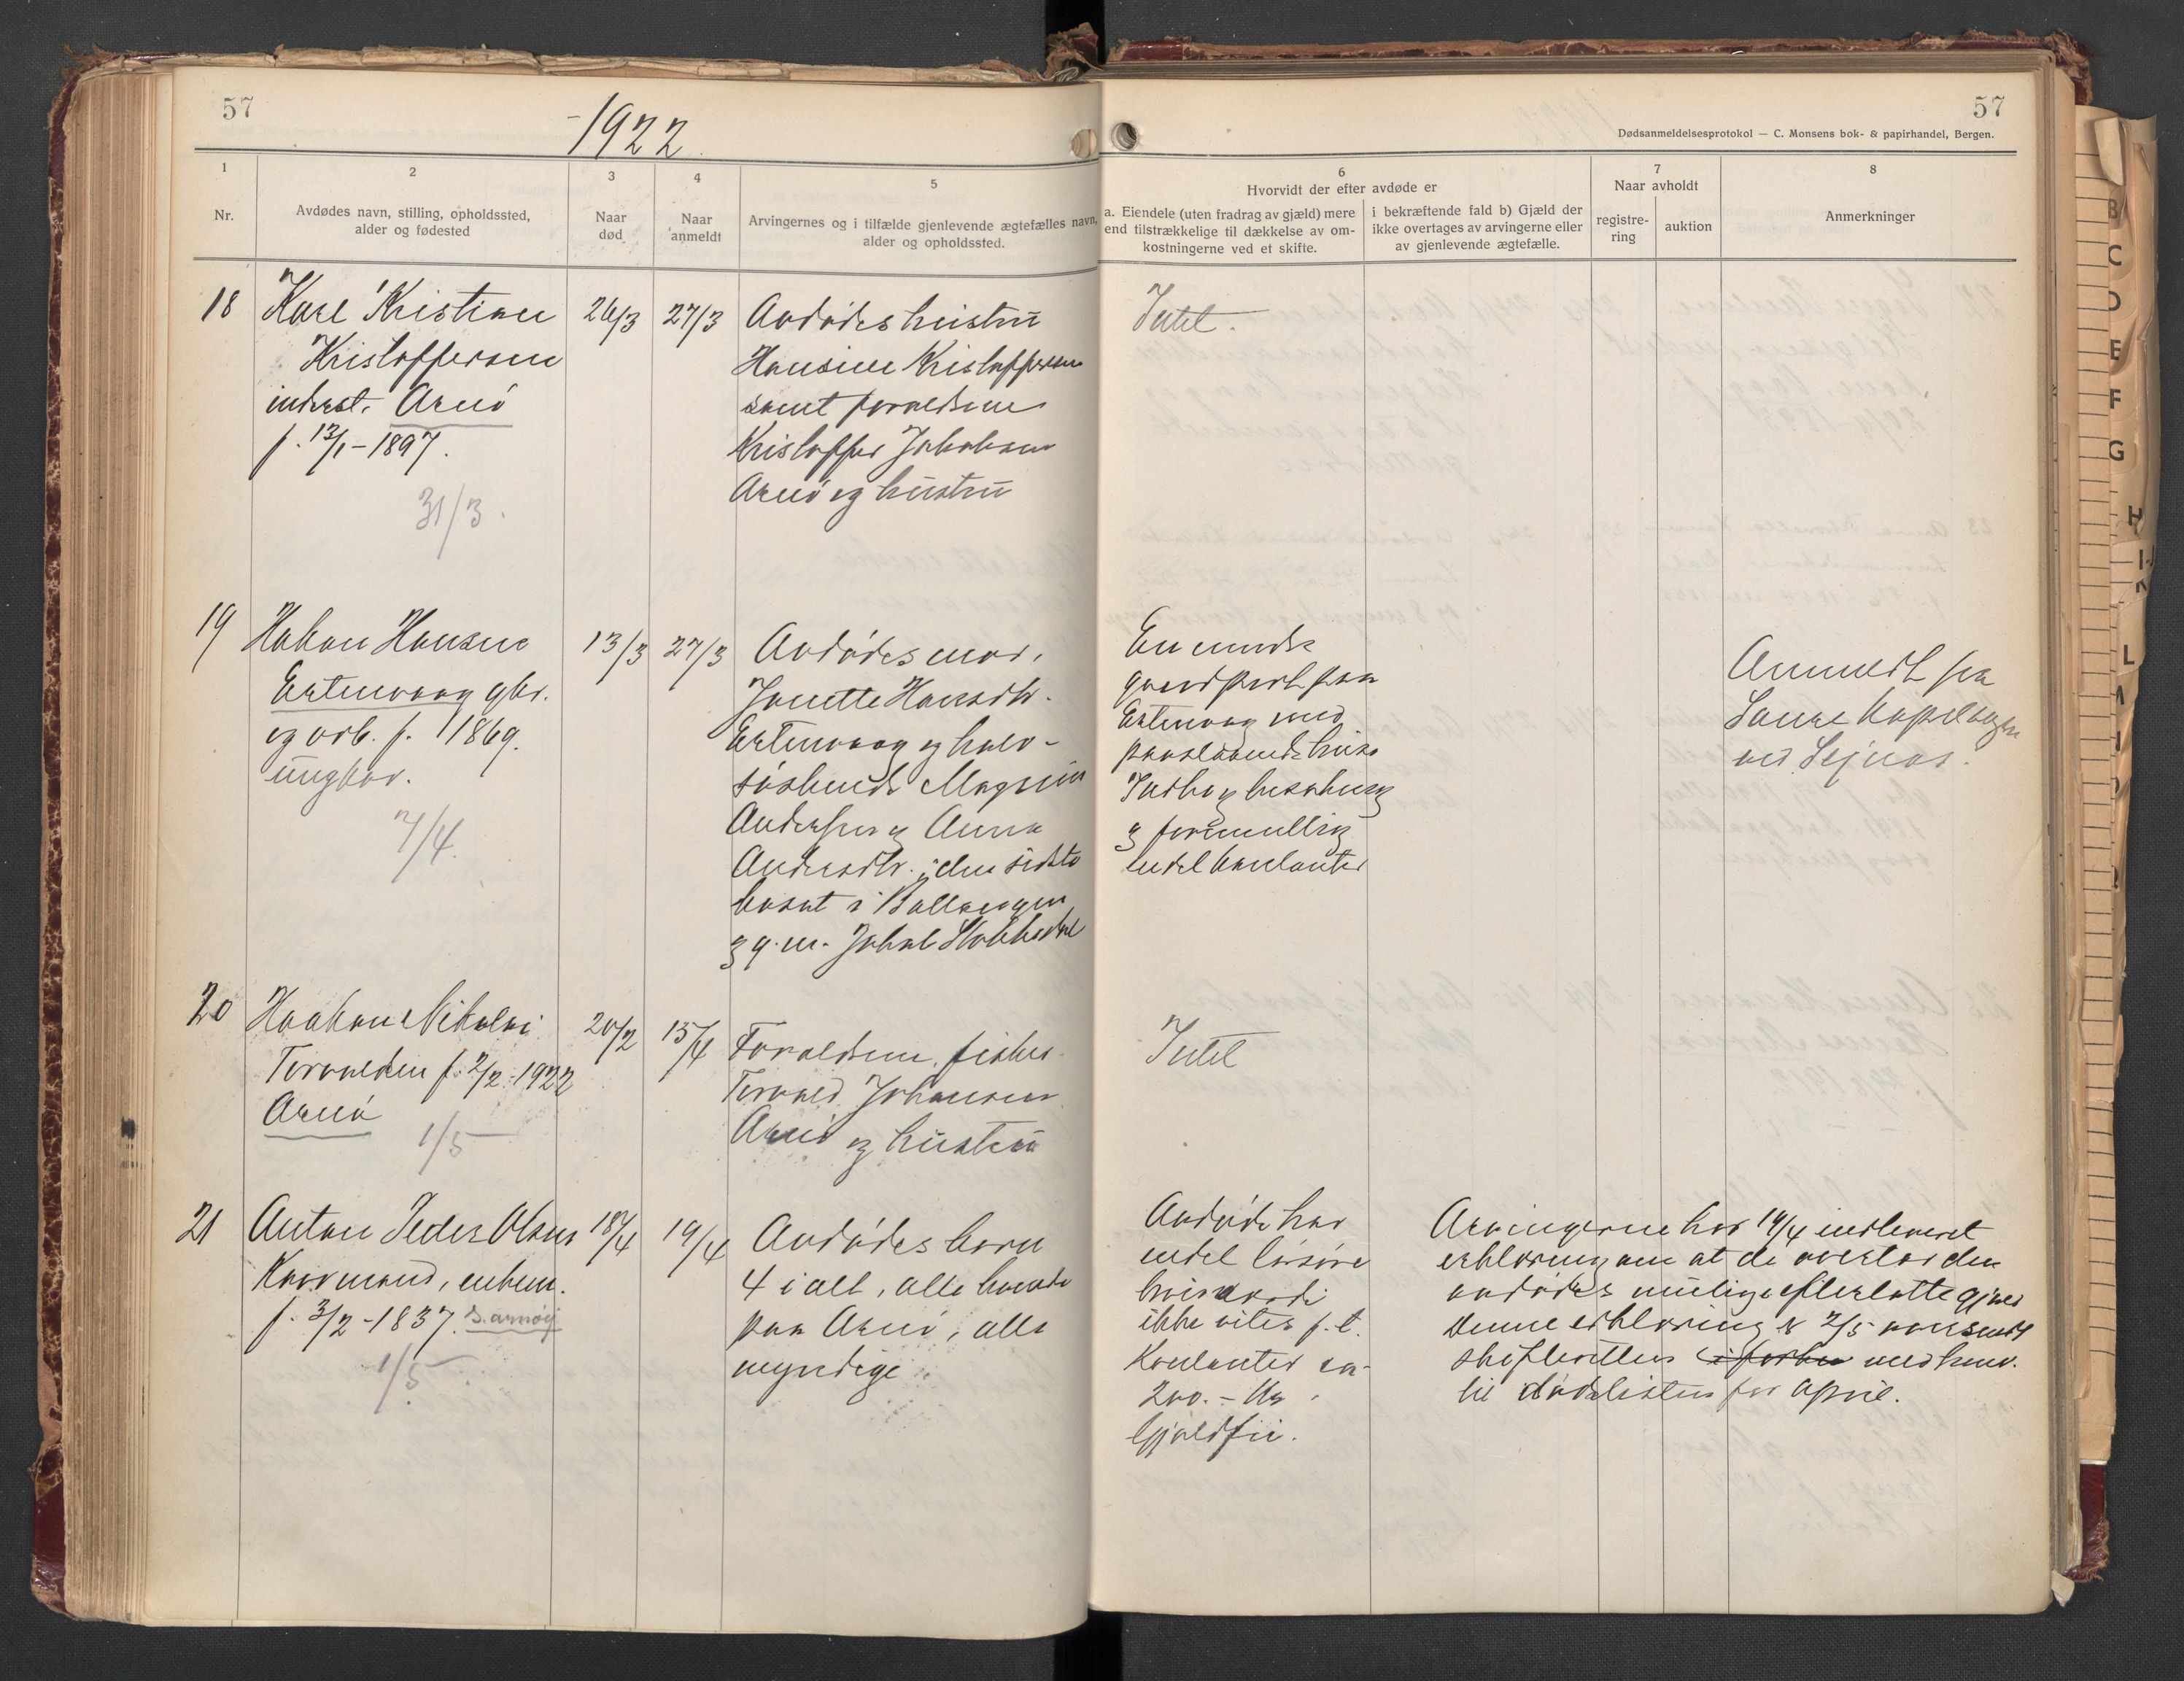 57
1922
57
Dødsanmeldelsesprotokol — C. Monsens bok- & papirhandel, Bergen.
1
Nr.
2
Avdødes navn, stilling, opholdssted,
alder og fødested
3
Naar
død
4
Naar
anmeldt
5
Arvingernes og i tilfælde gjenlevende ægtefælles navn,
alder og opholdssted.
6
Hvorvidt der efter avdøde er
a. Eiendele (uten fradrag av gjæld) mere
end tilstrækkelige til dækkelse av om-
kostningerne ved et skifte.
i bekræftende fald b) Gjæld der
ikke overtages av arvingerne eller
av gjenlevende ægtefælle.
7
Naar avholdt
registre-
ring
auktion
8
Anmerkninger
18
Karl Kristian
Kristoffersen
inderst. Arnø
f. 13/1-1897.
31/3.
26/3
27/3
Avdødes hustru
Hansine Kristoffersen
samt forældrene
Kristoffer Jakobsen
Arnø og hustru
Intet.
19
Hakon Hansen
Ertenvaag gbr.
og arb. f. 1869.
ungkar.
7/4.
13/3
27/3
Avdødes mor,
Janette Hansdtr.
Ertenvaag og halv-
søskende Magnus
Andersen og Anna
Andersdtr. den sidste
bosat i Ballangen
og g.m. Jakob
En mindre
gaardpart paa
Ertenvaag med
paastaaende huse
Indbo og besætning
og formentlig
endel kontanter
Anmeldt fra
Saura
ved
20
Haakon Nikolai
Torvaldsen f. 2/2-1922
Arnø
1/5
20/2
15/4
Forældrene, fisker
Torvald Johansen
Arnø og hustru
Intet
21
Anton Peder Olsen
Kaarmand, enkem.
f. 3/2-1837. S. arnøy
1/5
18/4
19/4
Avdødes børn
4 i alt, alle boende
paa Arnø, alle
myndige
Avdøde har
endel løsøre
hvis værdi
ikke vites p.t.
Kontanter ca.
200.- Kr.
Gjældfri.
Arvingerne har 19/4 indleveret
erklæring om at de overtar den
avdødes mulige efterlatte gjæld
Denne erklæring er 2/5 oversendt
skifteretten med henv.
til dødslisten for April.